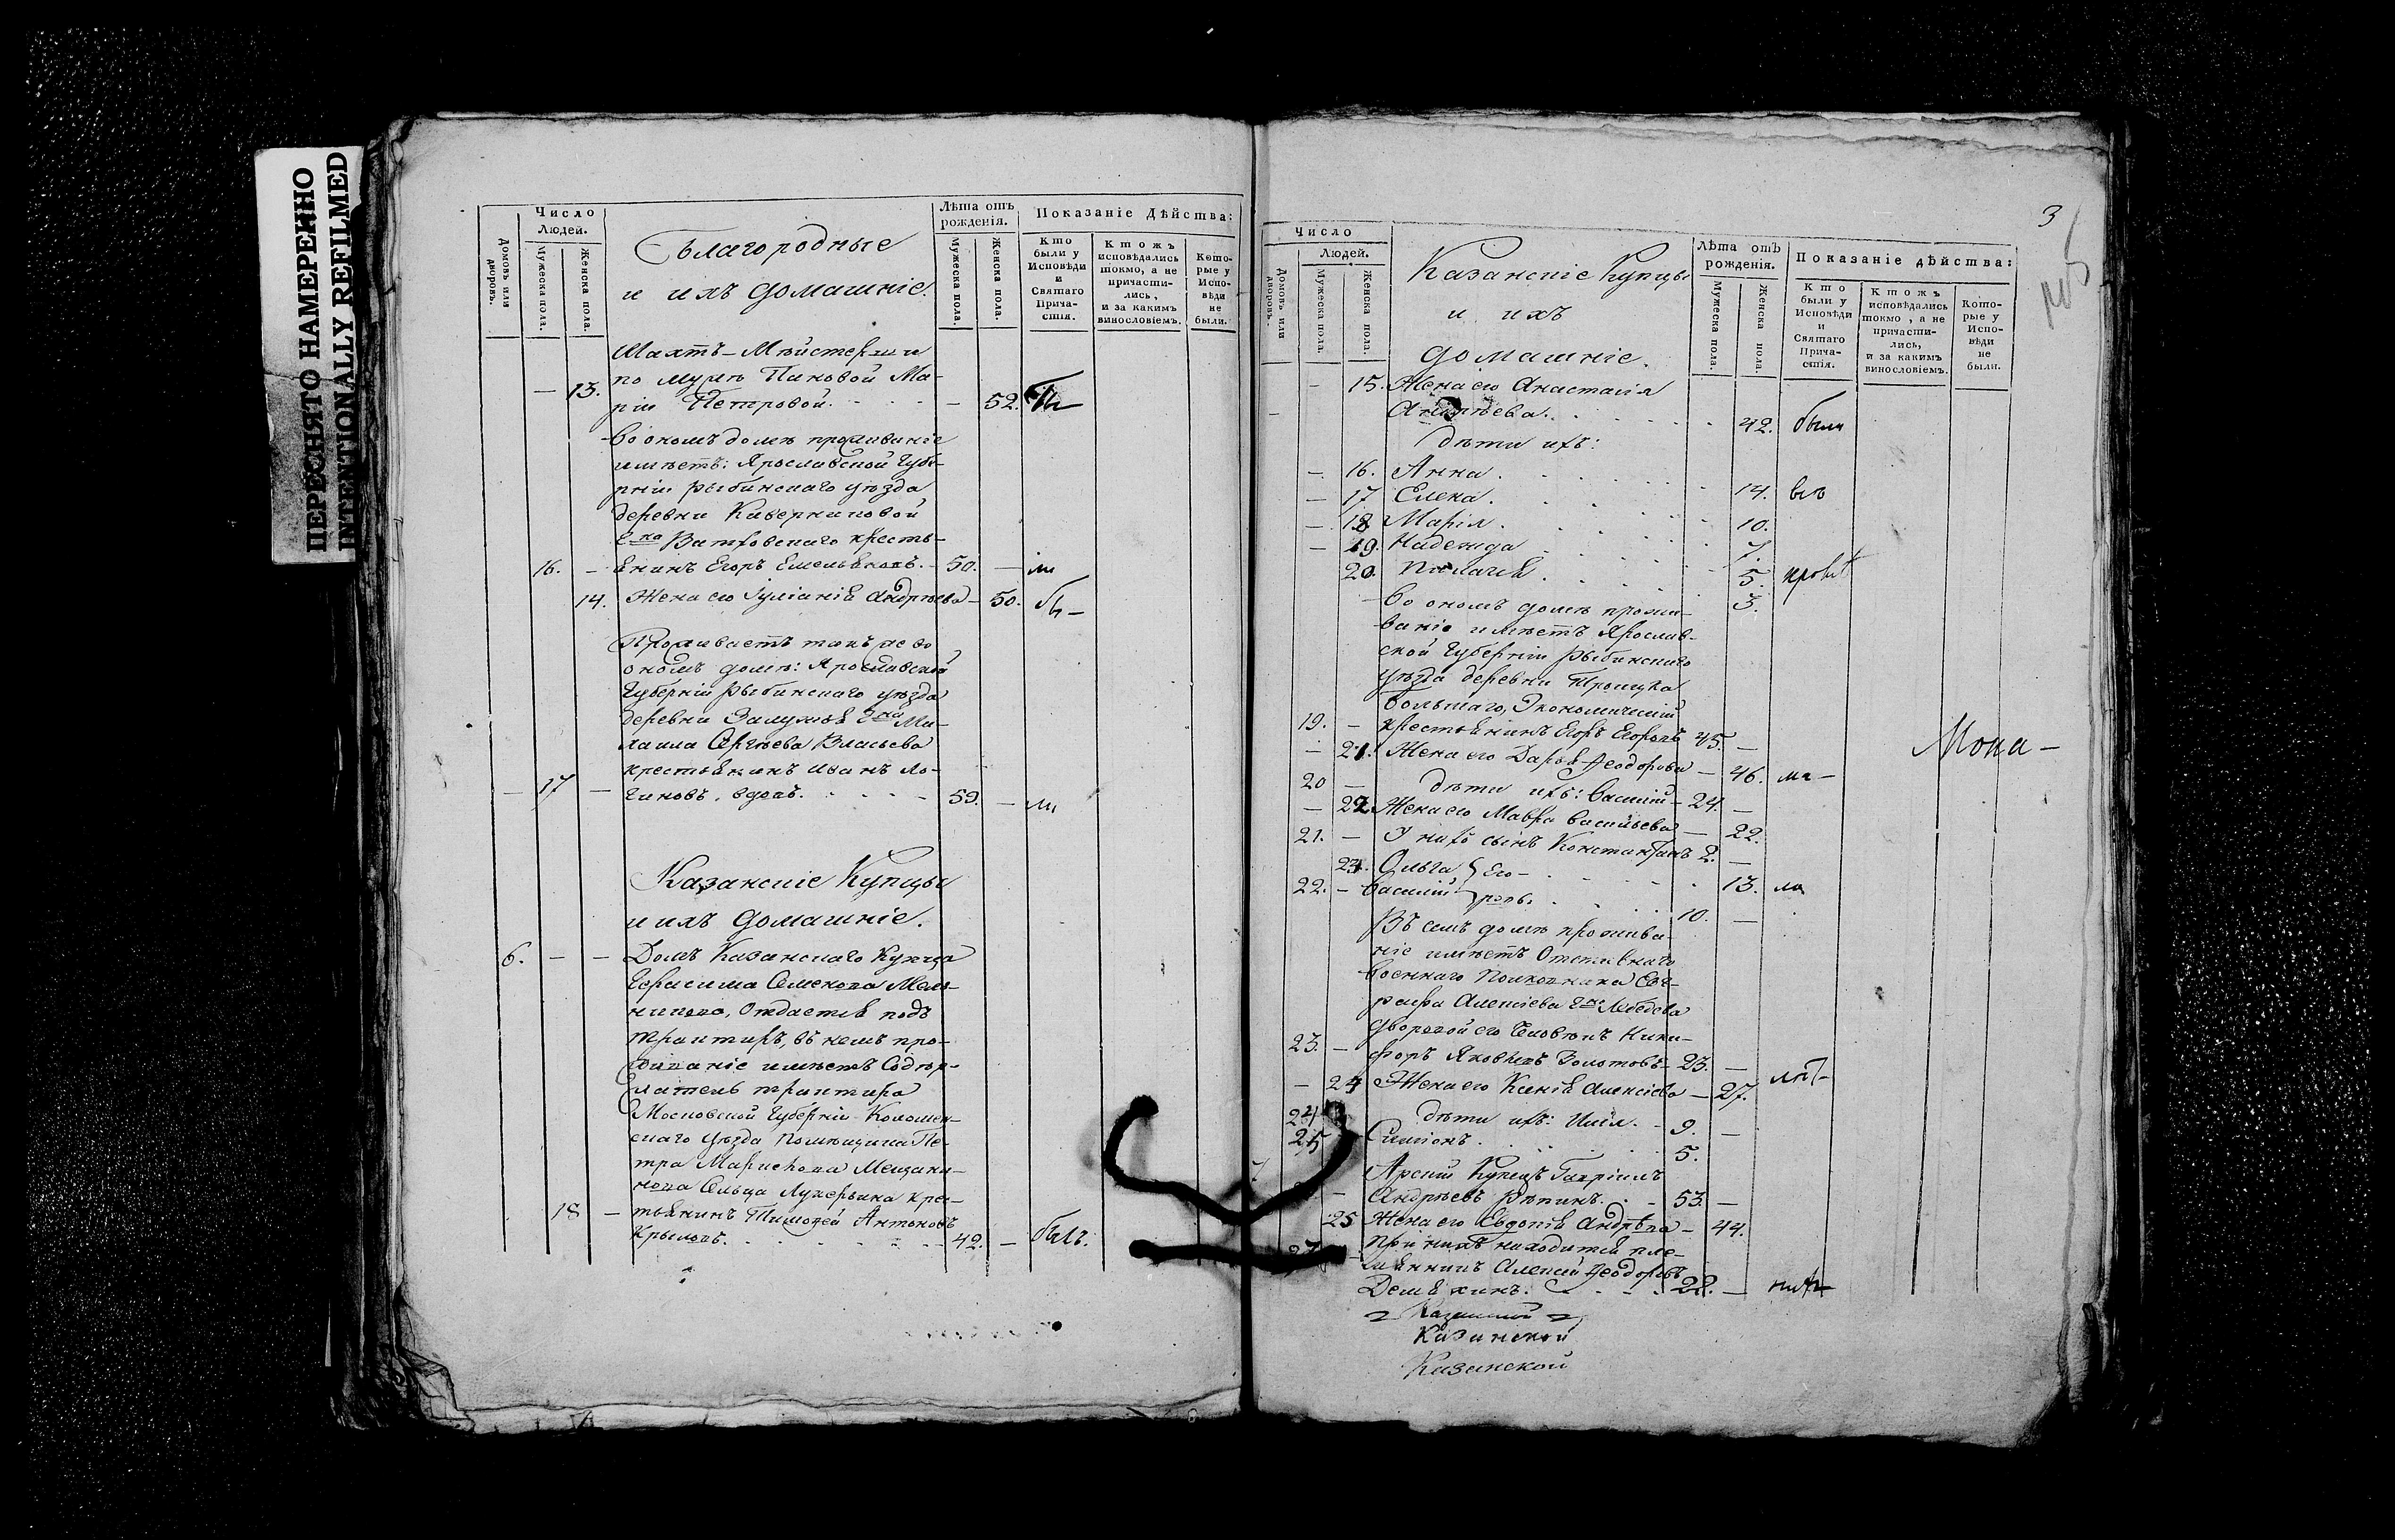 ПЕРЕСНЯТО НАМЕРЕННО
INTENTIONALLY REFILMED
Число
Людей.
Домовъ или дворовъ.
Мужеска пола.
Женска пола.
Благородные
и ихъ домашніе.
Лѣта отъ
рожденія.
Мужеска пола.
Женска пола.
Показаніе Дѣйства:
Кто
были у
Исповѣди
и
Святаго
Прича-
стія.
Ктожъ
исповѣдались
токмо, а не
причасти-
лись,
и за какимъ
винословіемъ.
Кото-
рые у
Испо-
вѣди
не
были.
по мужѣ Пановой Ма-
— 13. ріи Петровой. — 52.
Во ономъ домѣ проживаніе
имѣетъ: Ярославской Губе-
рніи Рыбинскаго уѣзда
деревни
кресть-
16. — янинъ Егоръ Емельяновъ. 50. —
14. Жена его Іуліанія Андрѣева — 50.
Проживаетъ такъ же во
ономъ домѣ: Ярославской
Губерніи Рыбинскаго уѣзда
деревни Ми-
хаила Сергѣева Власьева
крестьянинъ Иванъ Ло-
— 17 — гиновъ, вдовъ. 59. —
Казанскіе Купцы
и ихъ домашніе.
6. — — Домъ Казанскаго Купца
Герасима Семенова Мель-
никова, Отдается подъ
трактиръ, въ немъ про-
живаніе имѣетъ Содер-
жатель трактира
Московской Губерніи Коломен-
скаго Уѣзда помѣщика Пе-
тра
Сельца Лукерьина крес-
18 — тьянинъ Тимоѳей Антоновъ
Крыловъ. 42. — былъ.
3
Число
Людей.
Домовъ или дворовъ.
Мужеска пола.
Женска пола.
Казанскіе Купцы
и ихъ
домашніе.
Лѣта отъ
рожденія.
Мужеска пола.
Женска пола.
Показаніе дѣйства:
Кто
были у
Исповѣди
и
Святаго
Прича-
стія.
Ктожъ
исповѣдались
токмо, а не
причасти-
лись,
и за какимъ
винословіемъ.
Кото-
рые у
Испо-
вѣди
не
были.
— 15. Жена его Анастасія
— Андрѣева. 42. были
дѣти ихъ:
— 16. Анна. 14.
— 17 Елена. 10.
— 18 Марія. 7.
— 19. Надежда 5.
20. Пелагея. 3.
Во ономъ домѣ прожи-
ваніе имѣетъ Ярослав-
ской Губерніи Рыбинскаго
уѣзда деревни Троицка
Большаго, Экономическій
19. — крестьянинъ Егоръ Егоровъ 45. —
— 21. Жена его Дарья Ѳеодорова — 46.
20 — дѣти ихъ: Василій — 24. —
— 22. Жена его Мавра Васильева — 22.
21. — У нихъ сынъ Константинъ 2. —
23. Ольга } Его — 13.
22. — Василій } ровы. 10. —
Въ семъ домѣ прожива-
ніе имѣетъ Отставнаго
военнаго Полковника Ев-
графа Алексіева Г-на Лебедева
дворовой его Человѣкъ Ники-
23. — форъ Яковлевъ Золотовъ 23. —
— 24 Жена его Ксенія Алексіева — 27.
24 дѣти ихъ: 9. —
25 Симіонъ. 5.
Арской Купецъ Гавріилъ
— Андрѣевъ Рѣпинъ. 53. —
25 Жена его Евдокія Андрѣева — 44.
При нихъ находится пле-
27 мянникъ Алексѣй Ѳеодоровъ
Демяхинъ. 22. —
Мона —
Казанской
Казанской